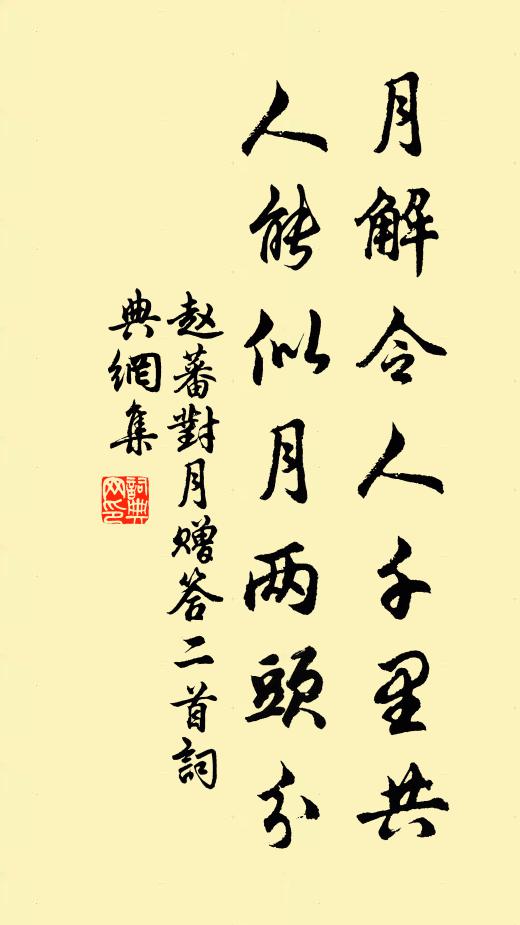 月解令人千里共
人能似月两頭分
赵蕃對月赠答二首詞
典網集
詞典
网印